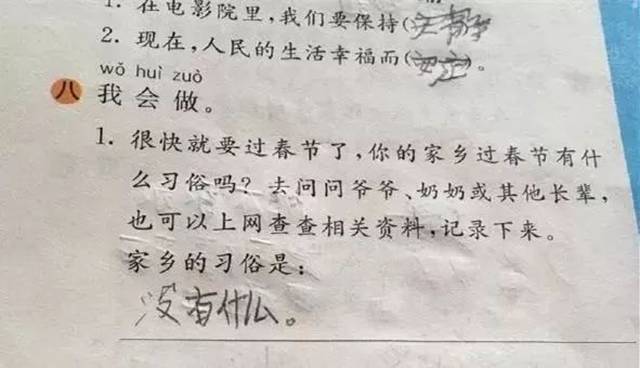 1. 在电影院里,我们要保持(
2. 现在,人民的生活幸福而(安定)。
wǒ huì zuò
八 我会做。
1. 很快就要过春节了,你的家乡过春节有什
么习俗吗?去问问爷爷、奶奶或其他长辈,
也可以上网查查相关资料,记录下来。
家乡的习俗是:
没有什么。